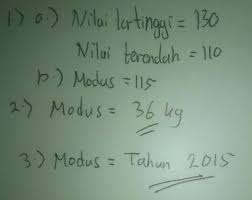 1.) a.) Nilai tertinggi = 130
Nilai terendah = 110
b.) Modus = 115
2.) Modus = 36 kg
3.) Modus = Tahun 2015